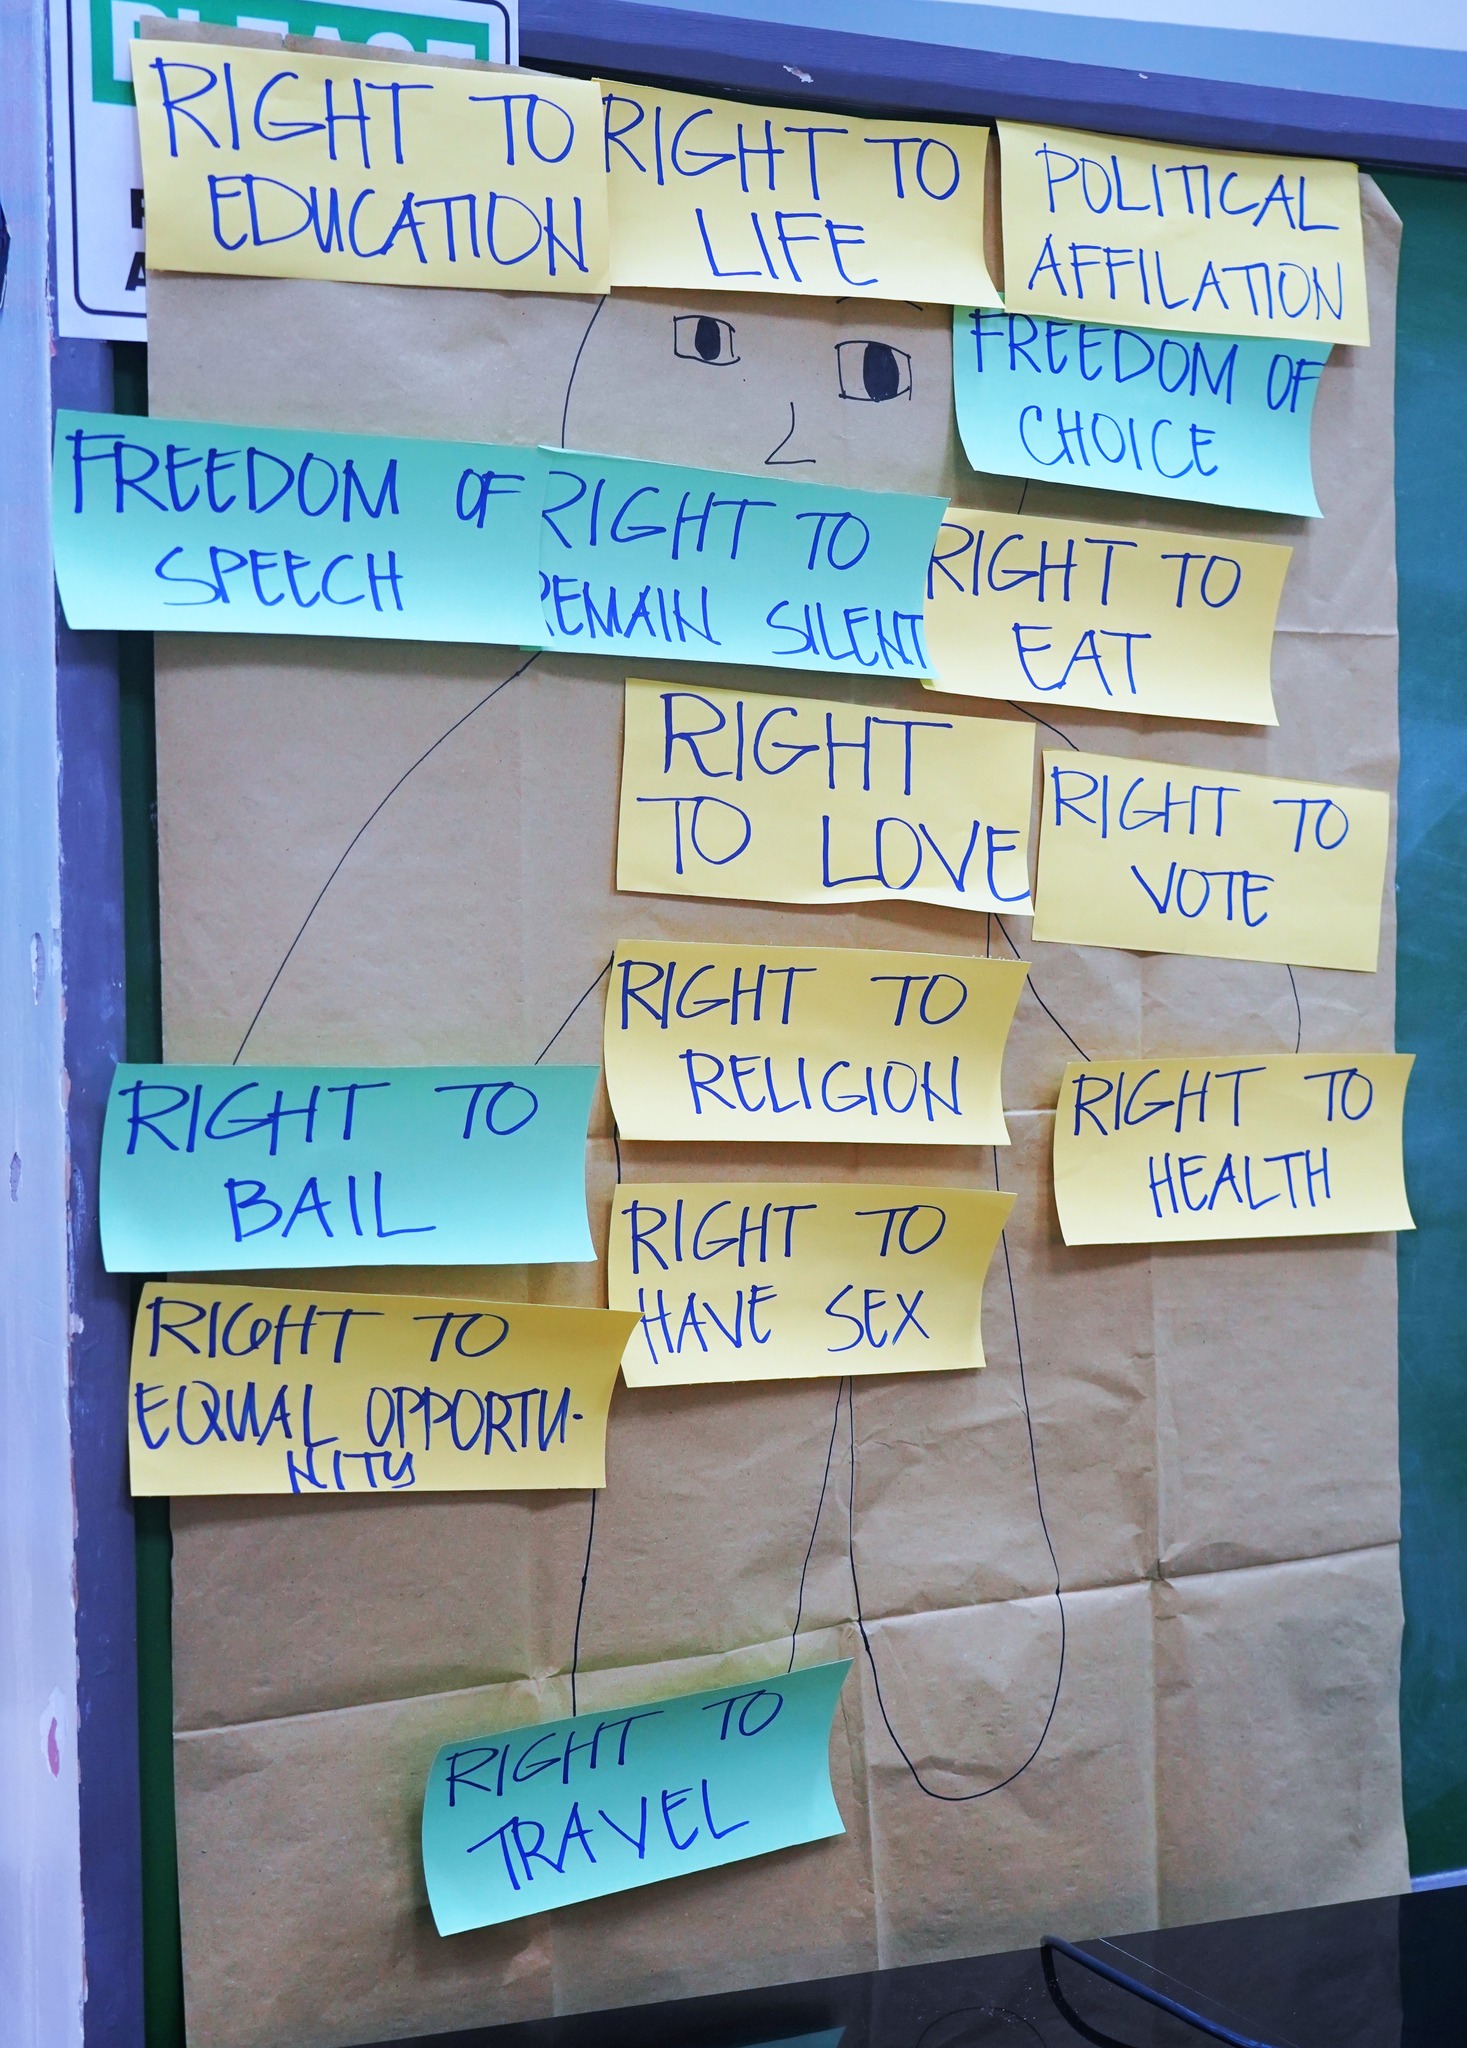 PLEASE
RIGHT TO
EDUCATION
RIGHT TO
LIFE
POLITICAL
AFFILATION
FREEDOM OF
CHOICE
FREEDOM OF
SPEECH
RIGHT TO
REMAIN SILENT
RIGHT TO
EAT
RIGHT
TO LOVE
RIGHT TO
VOTE
RIGHT TO
RELIGION
RIGHT TO
BAIL
RIGHT TO
HEALTH
RIGHT TO
HAVE SEX
RIGHT TO
EQUAL OPPORTU-
NITY
RIGHT TO
TRAVEL